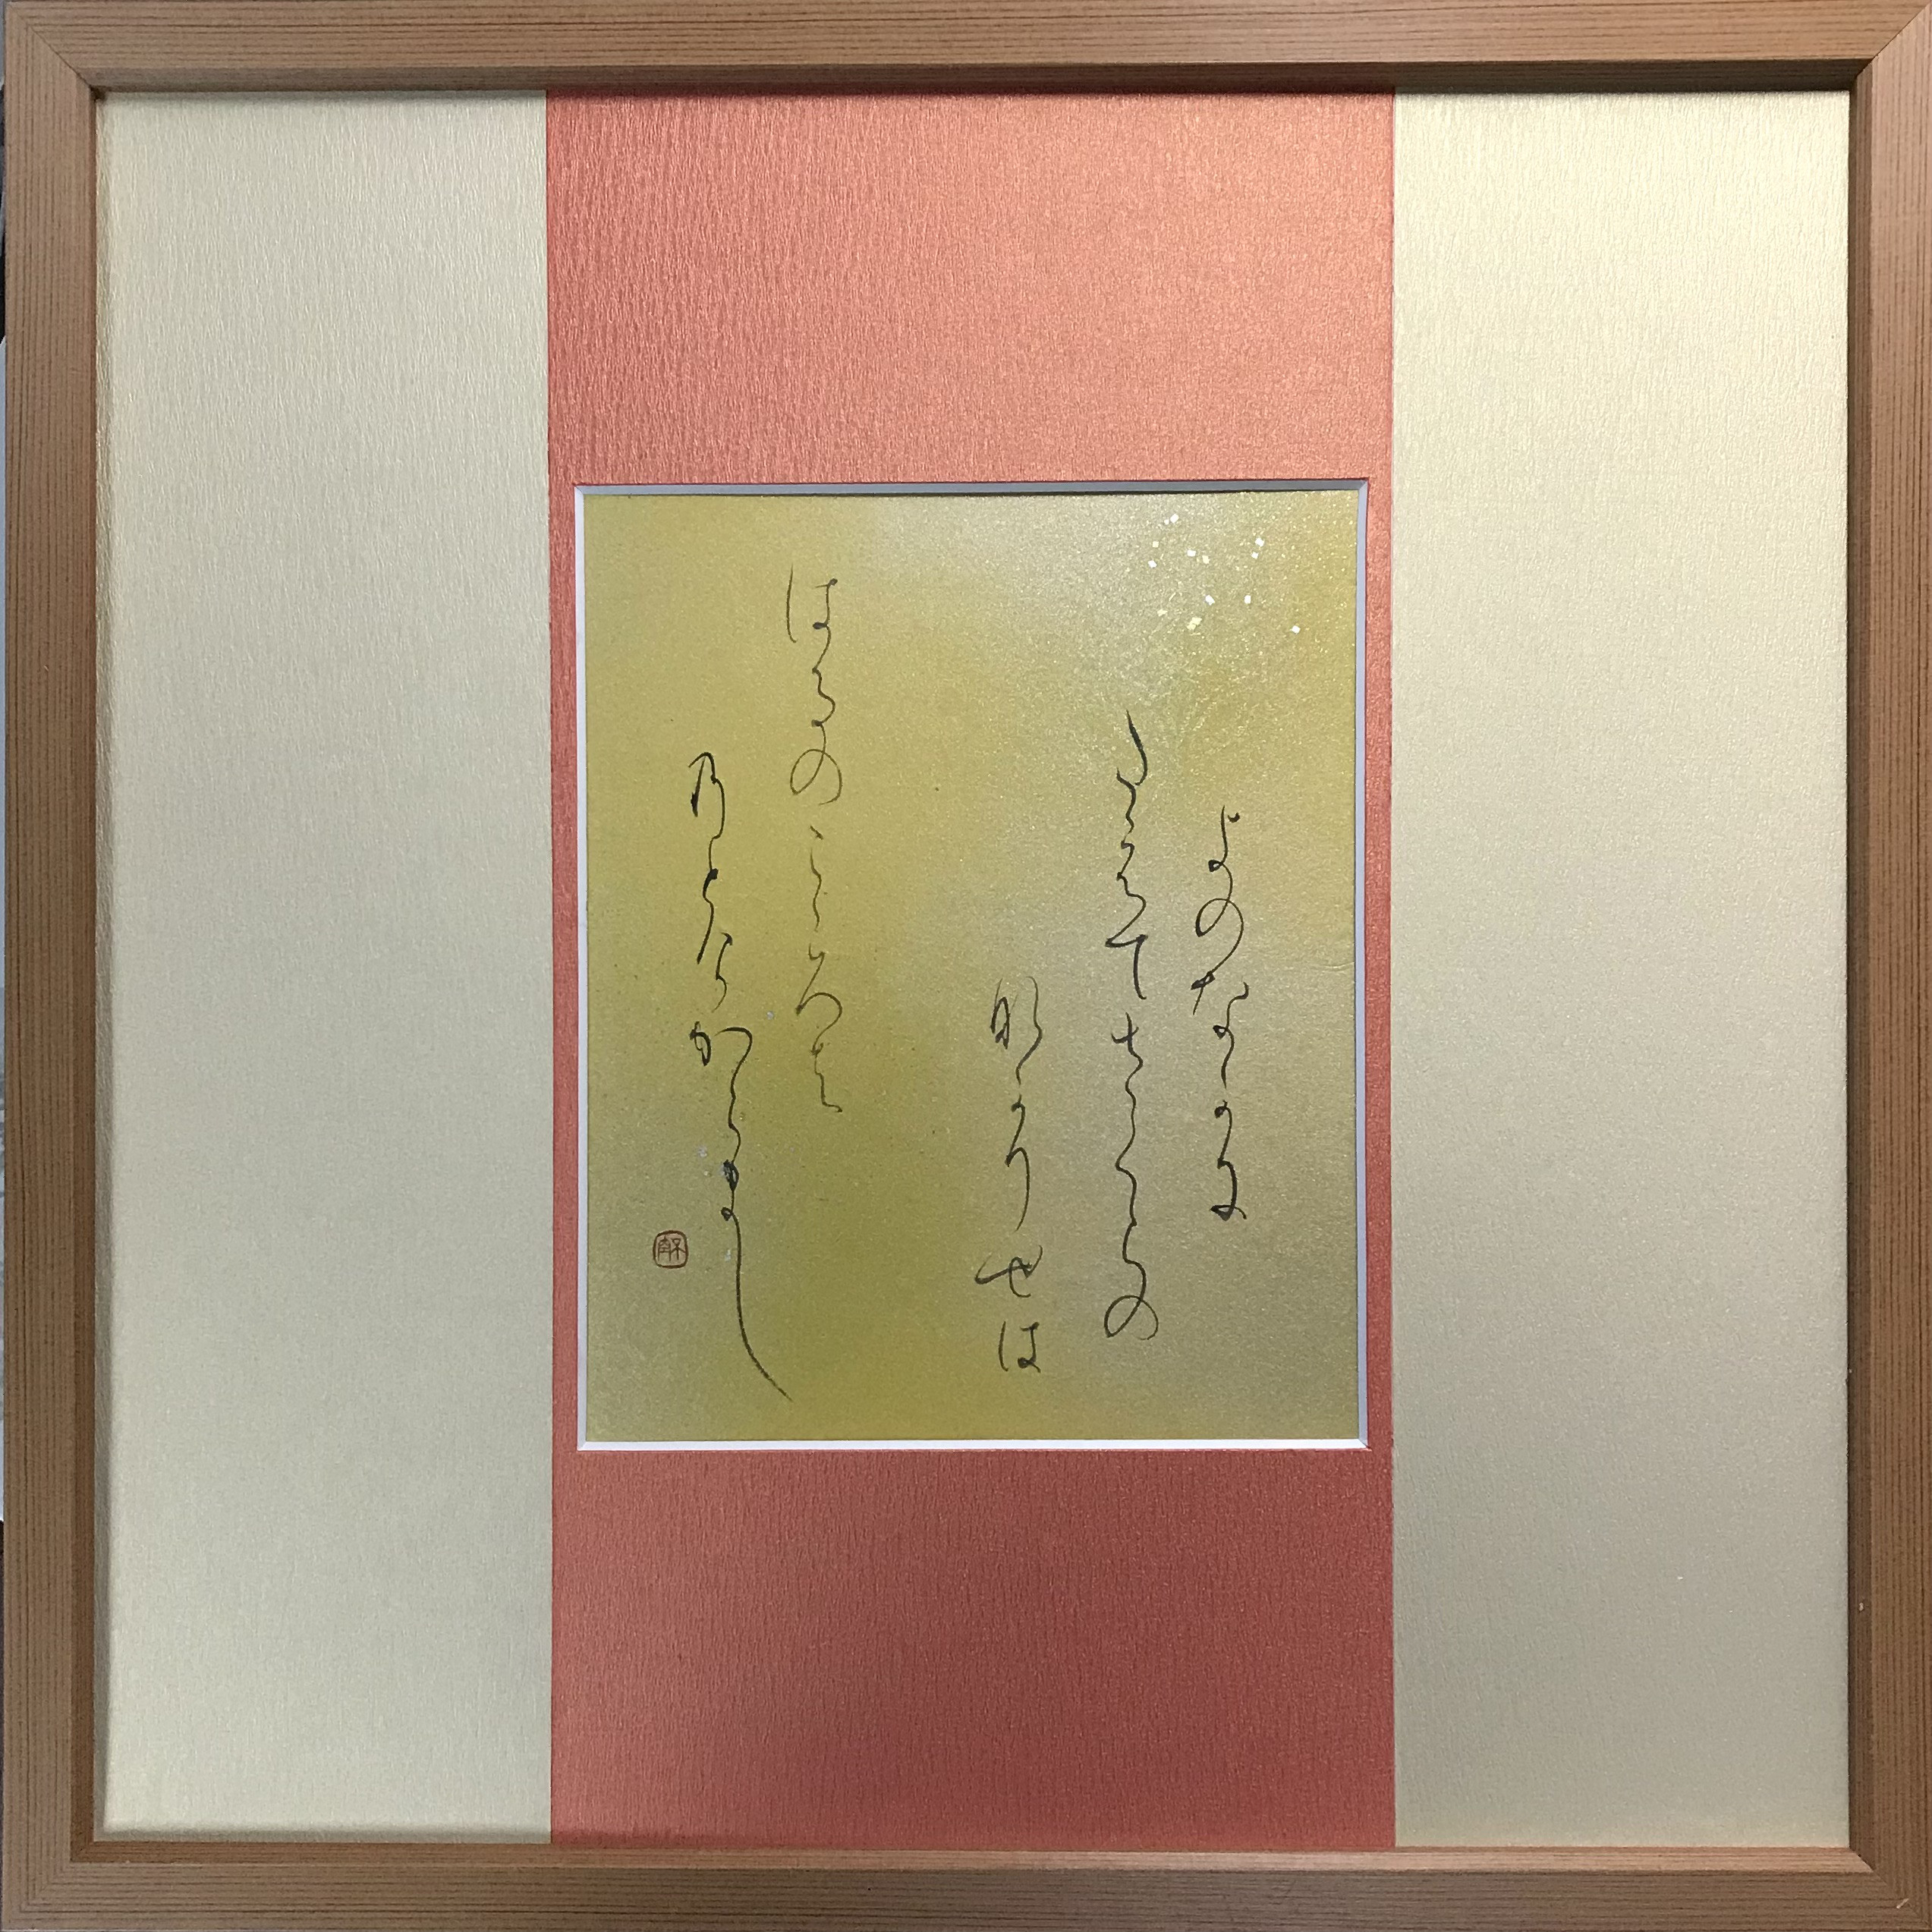 よのなかに
たえてさくらの
なかりせは
はるのこゝろは
のとけからまし